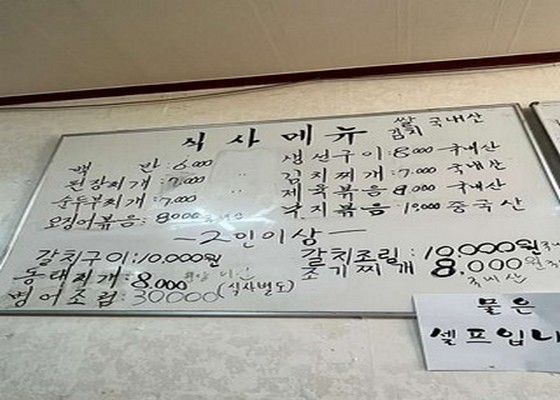 식사메뉴
쌀 국내산
김치
백 반: 6.000
된장찌개: 7.000
순두부찌개: 7.000
오징어볶음: 8000
생선구이: 8000 국내산
김치찌개: 7.000 국내산
제육볶음 8.000 국내산
볶음: 중국산
-2인이상-
갈치구이: 10,000원
동태찌개: 8.000
병어조림: 30000 (식사별도)
갈치조림: 10.000원
조기찌개 8.000원
국내산
물은
셀프입니